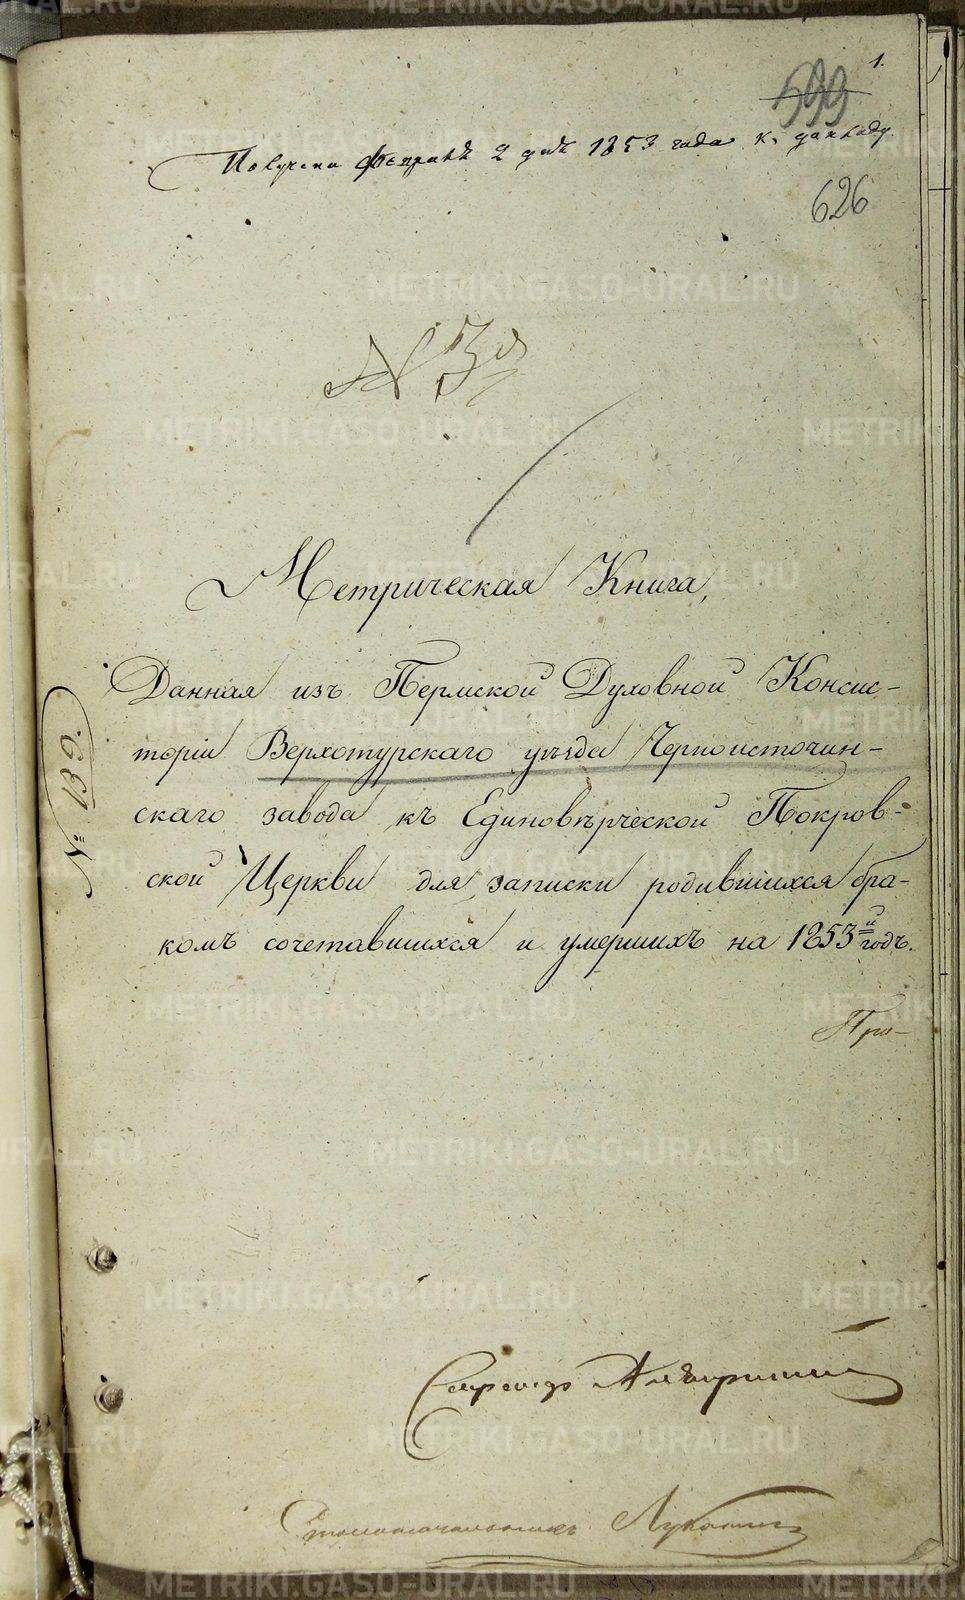 1.
599
Получена февраля 2 дня 1853 года к
626
№ 30
Метрическая Книга,
Данная изъ Пермской Духовной Консис-
торіи Верхотурскаго уѣзда Черноисточин-
скаго завода къ Единовѣрческой Покров-
ской Церкви для записки родившихся бра-
комъ сочетавшихся и умершихъ на 1853й годъ.
№ 139.
Про-
Столоначальникъ
METRIKI.GASO-URAL.RU